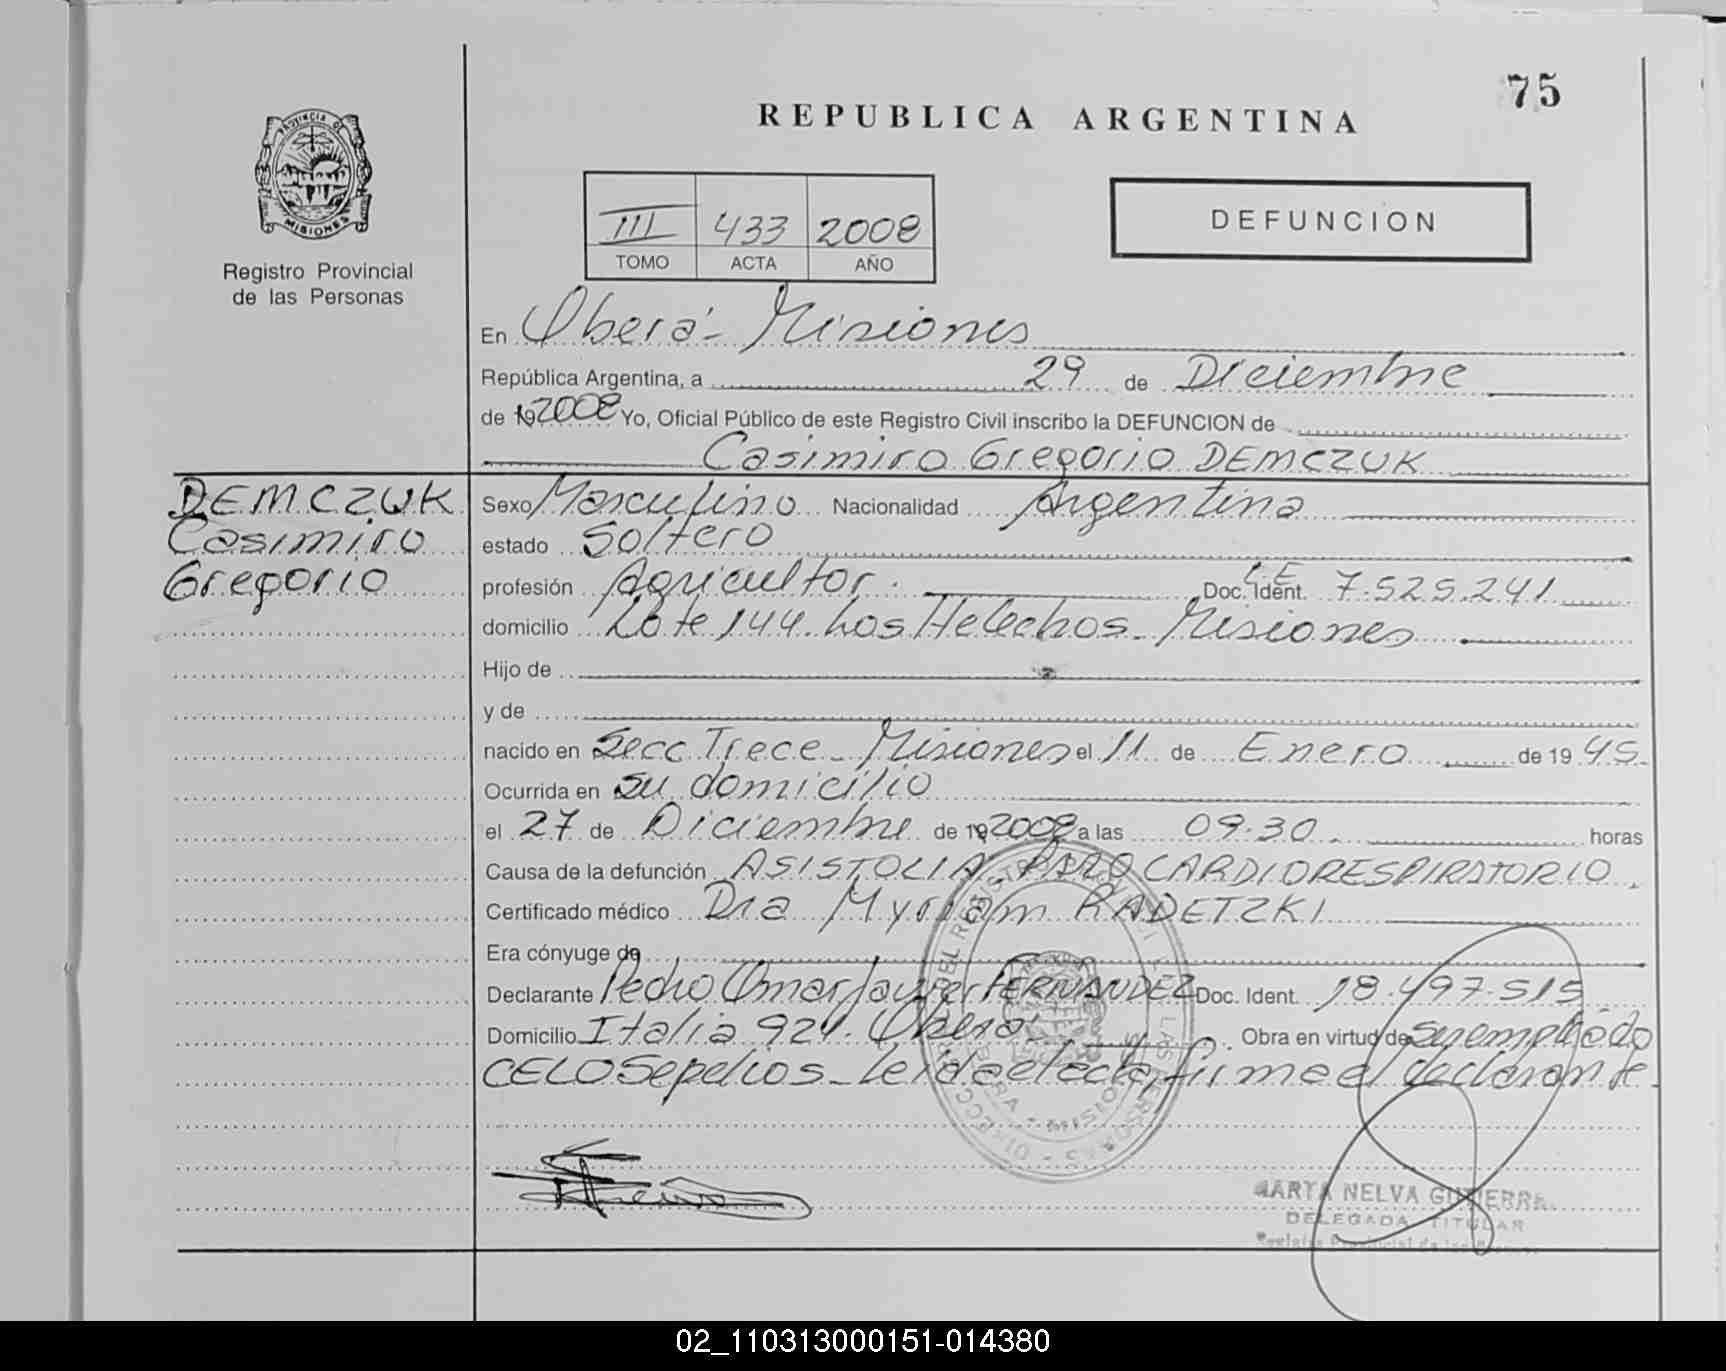 75
REPUBLICA ARGENTINA
PROVINCIA DE
MISIONES
Registro Provincial
de las Personas
III 433 2008
TOMO ACTA AÑO
DEFUNCION
En Oberá - Misiones
República Argentina, a 29 de Diciembre
de 19 2008 Yo, Oficial Público de este Registro Civil inscribo la DEFUNCION de
Casimiro Gregorio DEMCZUK
DEMCZUK
Casimiro
Gregorio
Sexo Masculino Nacionalidad Argentina
estado Soltero
profesión Agricultor. Doc. Ident. L.E 7.525.241
domicilio Lote 144. Los Helechos - Misiones
Hijo de
y de
nacido en Secc. Trece - Misiones el 11 de Enero de 19 45
Ocurrida en su domicilio
el 27 de Diciembre de 19 2008 a las 09.30. horas
Causa de la defunción ASISTOLIA. PARO CARDIORESPIRATORIO.
Certificado médico Dra Myriam RADETZKI
Era cónyuge de
Declarante Pedro Omar Javier FERNANDEZ Doc. Ident. 18.497.515
Domicilio Italia 921. Oberá. Obra en virtud de ser empleado
CELO Sepelios - Leida el acta, firma el declarante.
MARTA NELVA GUTIERRE
DELEGADA TITULAR
Registro Provincial de las
02_110313000151-014380